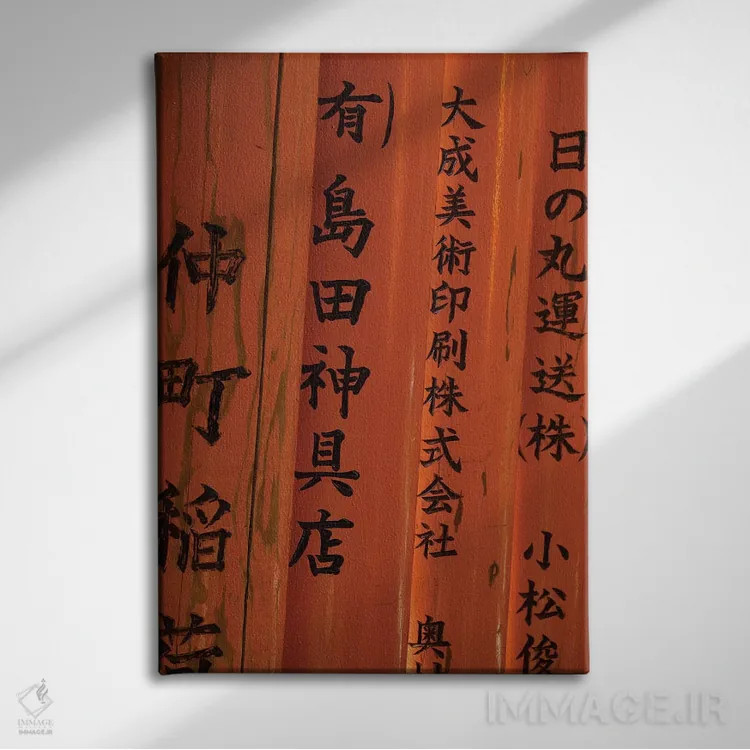 日の丸運送(株) 小松俊
大成美術印刷株式会社 奥
有)島田神具店
仲町稲荷
IMMAGE
IMMAGE.IR
IMMAGE.IR